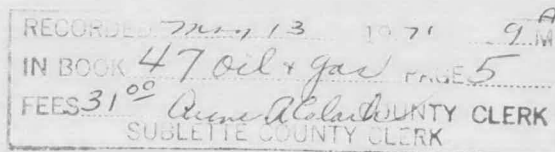 RECORDED May 13 1971 9 A M
IN BOOK 47 oil & gas PAGE 5
FEES 31 00 COUNTY CLERK
SUBLETTE COUNTY CLERK